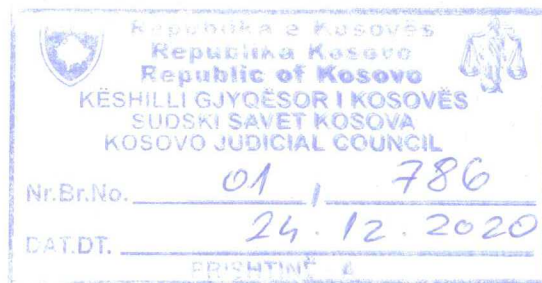 Republika e Kosovës
Republika Kosovo
Republic of Kosovo
KËSHILLI GJYQËSOR I KOSOVËS
SUDSKI SAVET KOSOVA
KOSOVO JUDICIAL COUNCIL
Nr.Br.No. 01 / 786
DAT.DT. 24.12.2020
PRISHTINË